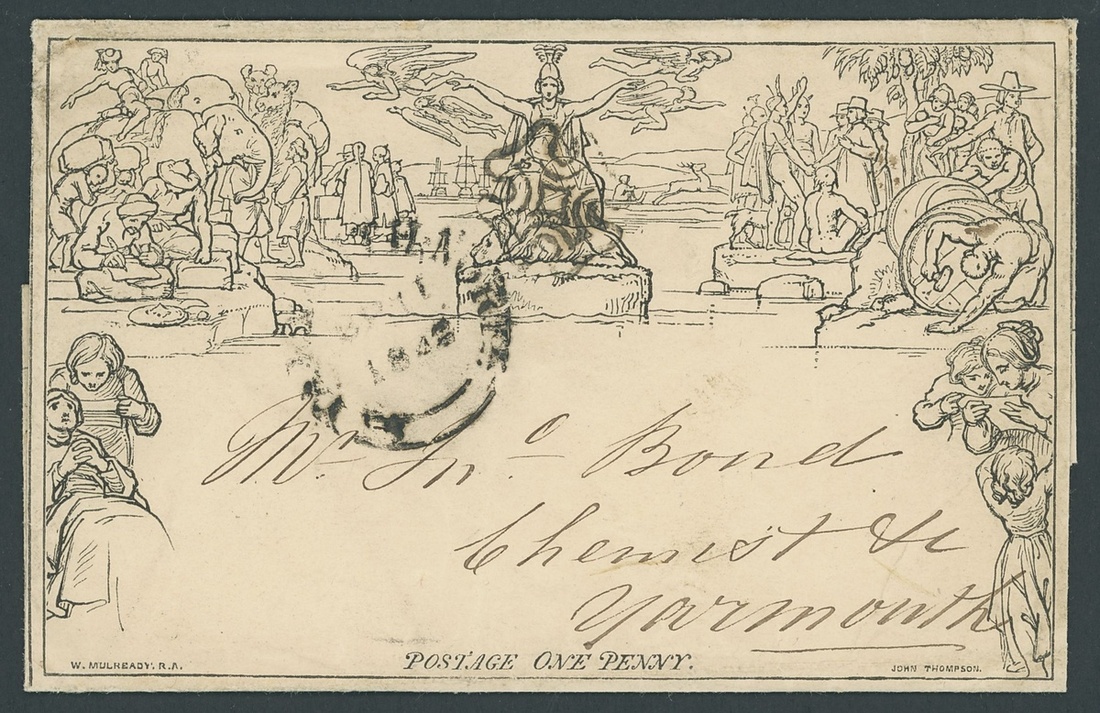 1842
Mr Jno Bond
Chemist &c
Yarmouth
W. MULREADY. R.A.
POSTAGE ONE PENNY.
JOHN THOMPSON.